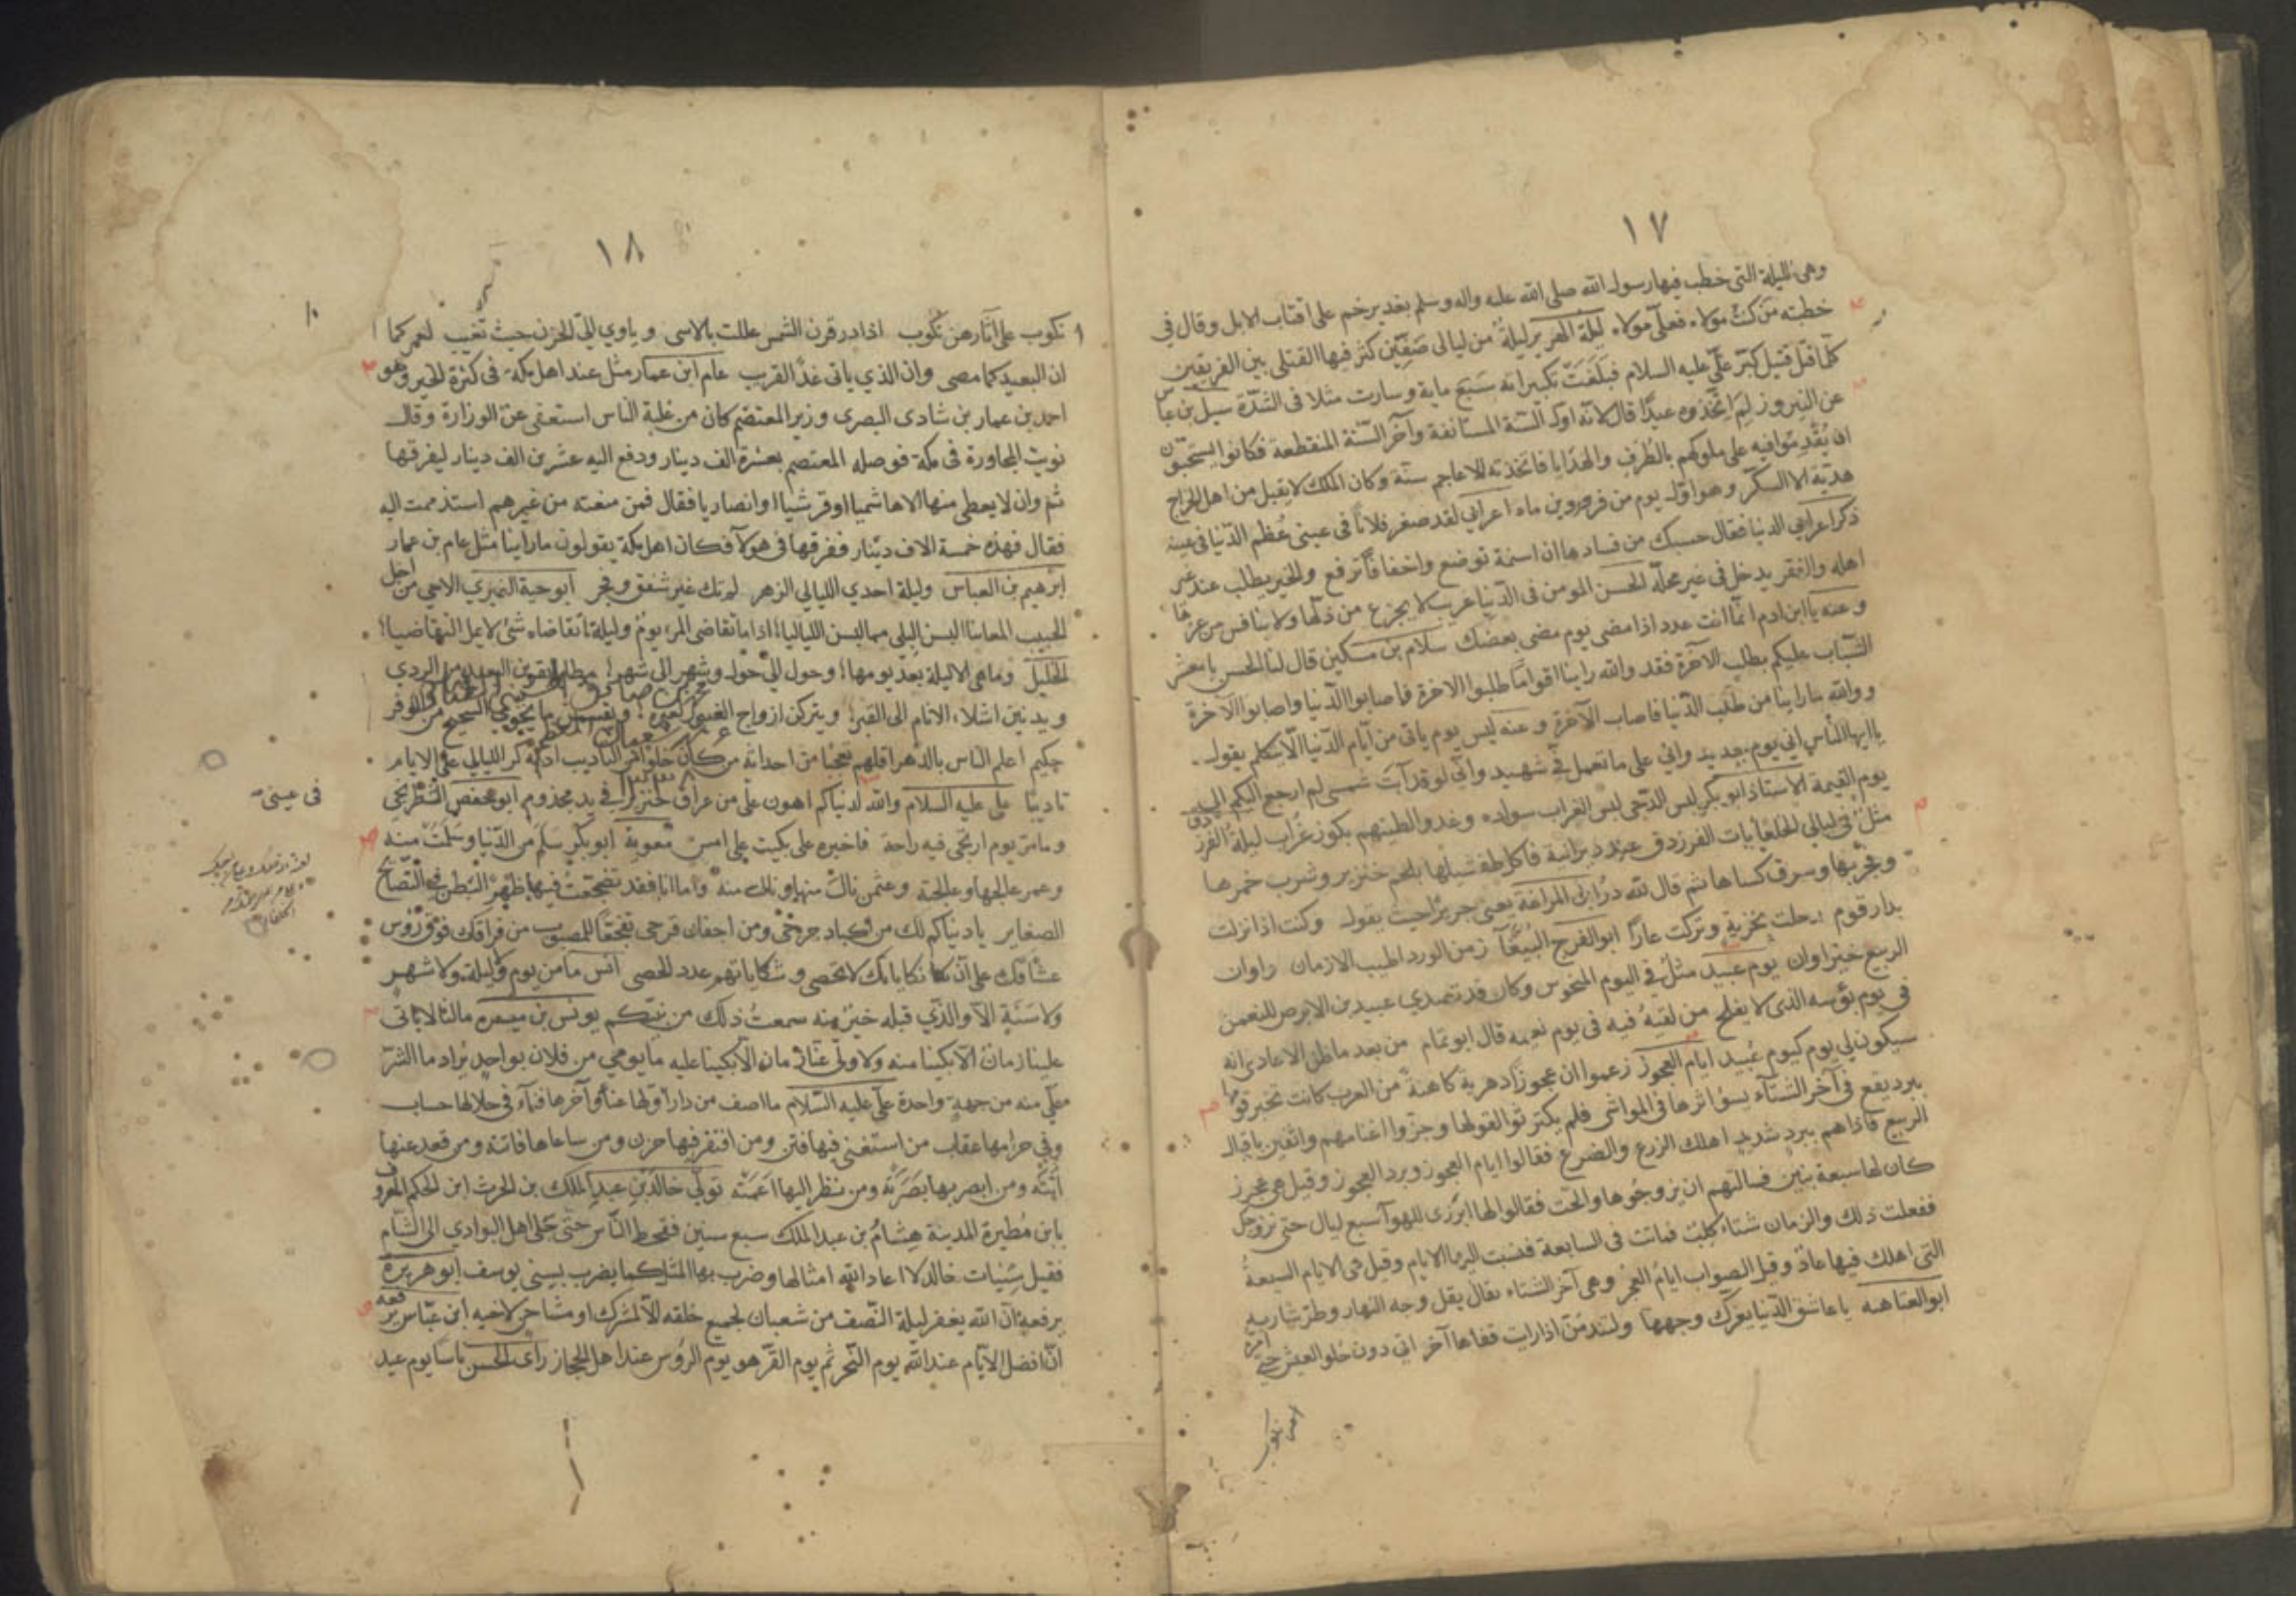 ١٧
وهى الليلة التى خطب فيها رسول الله صلى الله عليه واله وسلم بغدير خم على اقتاب الابل وقال فى
خطبته من كنت مولاه فعلى مولاه ليلة الهرير ليلة من ليالى صفين كثر فيها القتلى بين الفريقين
كلما قتل قتيل كبر على عليه السلام فبلغت تكبيراته سبع ماية وسارت مثلا فى الشدة سيل بن عباس
عن النيروز لم اتخذوه عيدا قال لانه اول السنة المستانفة وآخر السنة المنقطعة فكانوا يستحبون
ان يقدموا فيه على ملوكهم بالطرف والهدايا فاتخذته الاعاجم سنة وكان الملك لا يقبل من اهل الخراج
هدية الا السكر وهو اول يوم من فروردين ماه اعرابي لقد صغر فلانا فى عينى عظم الدنيا فى عينه
ذكر اعرابي الدنيا فقال حسبك من فسادها ان اسنمة توضع واخفافا ترفع والخير يطلب عند غير
اهله والفقر يدخل فى غير محله الحسن المومن فى الدنيا غريب لا يجزع من ذلها ولا ينافس من عزها
وعنه يا ابن ادم انما انت عدد اذا مضى يوم مضى بعضك سلام بن مسكين قال لنا الحسن يا معشر
الشباب عليكم بطلب الآخرة فقد والله راينا اقواما طلبوا الاخرة فاصابوا الدنيا واصابوا الآخرة
ووالله ما راينا من طلب الدنيا فاصاب الآخرة وعنه ليس يوم ياتى من ايام الدنيا الا يتكلم يقول
يا ايها الناس انى يوم جديد وانى على ما تعمل فى شهيد وانى لو قد آبت شمسى لم ارجع اليكم الى
يوم القيمة الاستاذ ابو بكر لبس الدجى لبس الغراب سواده وغدو الطينهم بكور غراب ليلة الفرزدق
مثل فى ليالى الخلعا بات الفرزدق عند ديرانية فاكل طفشيلها بلحم خنزير وشرب خمرها
وفجر بها وسرق كساها ثم قال لله در ابن المراغة يعنى جريرا حيث يقول وكنت اذا نزلت
بدار قوم رحلت بخزية وتركت عارا ابو الفرج الببغا زمن الورد اطيب الازمان واوان
الربيع خير اوان يوم عبيد مثل فى اليوم المنحوس وكان قد تصدى عبيد بن الابرص للنعمن
فى يوم بؤسه الذى لا يفلح من لقيه فيه فى يوم نعيمه قال ابو تمام من بعد ما ظن الاعادى انه
سيكون لي يوم كيوم عبيد ايام العجوز زعموا ان عجوزا دهرية كاهنة من العرب كانت تخبر قومها
ببرد يقع فى آخر الشتآء يسؤ اثرها فى المواشى فلم يكترثوا لقولها وجزوا اغنامهم واثقين باقبال
الربيع فاذا هم ببرد شديد اهلك الزرع والضرع فقالوا ايام العجوز وبرد العجوز وقيل هى عجوز
كان لها سبعة بنين فسالتهم ان يزوجوها والحت فقالوا لها ابرزى للهوآ سبع ليال حتى نزوجك
ففعلت ذلك والزمان شتاء كلب فماتت فى السابعة فنسبت اليها الايام وقيل هى الايام السبعة
التى اهلك فيها عاد وقيل الصواب ايام العجز وهى آخر الشتاء يقال بقل وجه النهار وطر شاربه
ابو العتاهية يا عاشق الدنيا يغرك وجهها ولتندمن اذا رايت قفاها آخر اتى دون حلو العيش حتى امره
١٨
نكوب على آثارهن نكوب اذا ذر قرن الشمس عللت بالاسى وياوي الي الحزن حيث تغيب لعمر كما
ان البعيد كما مضى وان الذي ياتى غدا لقريب عام ابن عمار مثل عند اهل مكة فى كثرة الخير وهو
احمد بن عمار بن شادى البصرى وزير المعتصم كان من غلبة الناس استعفى عن الوزارة وقال
نويت المجاورة فى مكة فوصله المعتصم بعشرة الف دينار ودفع اليه عشرين الف دينار ليفرقها
ثم وان لا يعطى منها الا هاشميا او قرشيا او انصاريا فقال فمن منعته من غيرهم استذممت اليه
فقال فهذه خمسة الاف دينار ففرقها فى هولآ فكان اهل مكة يقولون ما راينا مثل عام بن عمار
ابرهيم بن العباس وليلة احدي الليالي الزهر لم تك غير شفق وفجر ابو حية النميري الا حي من اجل
الحبيب المعانيا لبسن البلى مما لبسن اللياليا اذا ما تقاضى المرء يوم وليلة تقاضاه شئ لا يمل التقاضيا
الخليل وما هى الا ليلة بعد يومها وحول الى حول وشهر الى شهر مطايا يقربن البعيد من الردي
ويدنين اشلاء الانام الى القبر ويتركن ازواج الغيور لغيره ويقسمن ما يحوي الشحيح من الوفر
حكيم اعلم الناس بالدهر اقلهم تعجبا من احداثه من كان خلوا من التاديب ادبه كر الليالي على الايام
تاديبا على عليه السلام والله لدنياكم اهون على من عراق خنزير في يد مجذوم ابو محفض الشطرنجى
وما مر يوم ارتجى فيه راحة فاخبره الى بكيت على امس معوية ابو بكر سلم من الدنيا وسلمت منه
وعمر عالجها وعالجته وعثمن نال منها ونالت منه واما انا فقد تضجعت فيها ظهرا لبطن
الصغاير يا دنياكم لك من اكباد جرحى ومن اجفان قرحى من فراقك فوق رؤس
عشاقك على ان نكاياتك لا تحصى وشكاياتهم عدد الحصى انس ما من يوم وليلة ولا شهر
ولا سنة الا والذي قبله خير منه سمعت ذلك من نبيكم يونس بن ميسره مالنا لا ياتى
علينا زمان الا بكينا منه ولا ولى عنا زمان الا بكينا عليه ما يومي من فلان بواحد يراد ما الشر
على منه من جهة واحدة على عليه السلام ما اصف من دار اولها عناء وآخرها فنآء فى حلالها حساب
وفي حرامها عقاب من استغنى فيها فتن ومن افتقر فيها حزن ومن ساعاها فاتته ومن قعد عنها
اتته ومن ابصر بها بصرته ومن نظر اليها اعمته تولى خالد بن عبد الملك بن الحرث ابن الحكم المعروف
بابن مطيرة المدينة هشام بن عبد الملك سبع سنين فقحط الناس حتى جلا اهل البوادي الى الشام
فقيل سنيات خالد لا اعاد الله امثالها وضرب بها المثل كما يضرب بسنى يوسف ابو هريرة
يرفعه ان الله يغفر ليلة النصف من شعبان لجميع خلقه الا لمشرك او مشاحن لاخيه ابن عباس يرفعه
ان افضل الايام عند الله يوم النحر ثم يوم القر هو يوم الرؤس عند اهل الحجاز راى الحسن ناسا يوم عيد
فى عينى